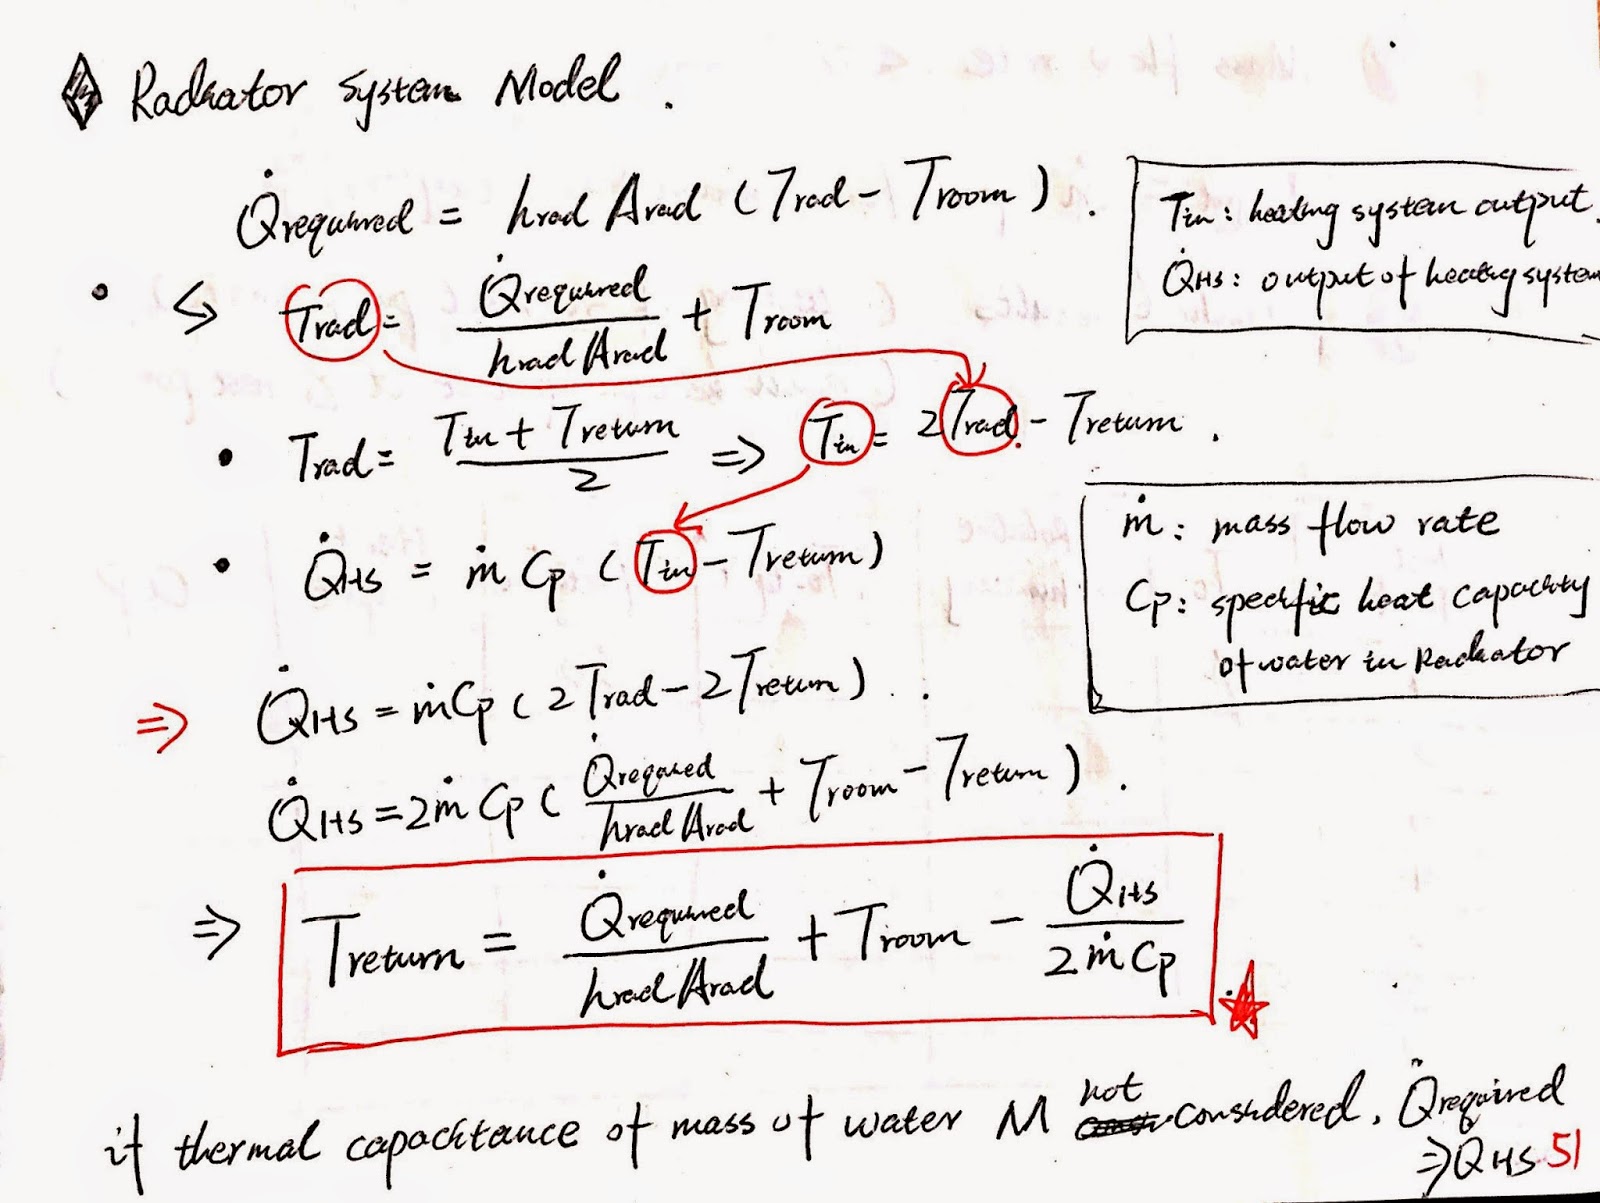 Radiator System Model.
Q̇required = hrad Arad (Trad - Troom).
Tin: heating system output.
Q̇HS: output of heating system
• ↳ Trad = Q̇required / hrad Arad + Troom
• Trad = Tin + Treturn / 2 => Tin = 2Trad - Treturn.
• Q̇HS = ṁ Cp (Tin - Treturn)
ṁ: mass flow rate
Cp: specific heat capacity
of water in Radiator
=> Q̇HS = ṁCp (2Trad - 2Treturn).
Q̇HS = 2ṁ Cp (Q̇required / hrad Arad + Troom - Treturn).
=> Treturn = Q̇required / hrad Arad + Troom - Q̇HS / 2ṁCp
if thermal capacitance of mass of water M not considered. Q̇required
=> QHS 51